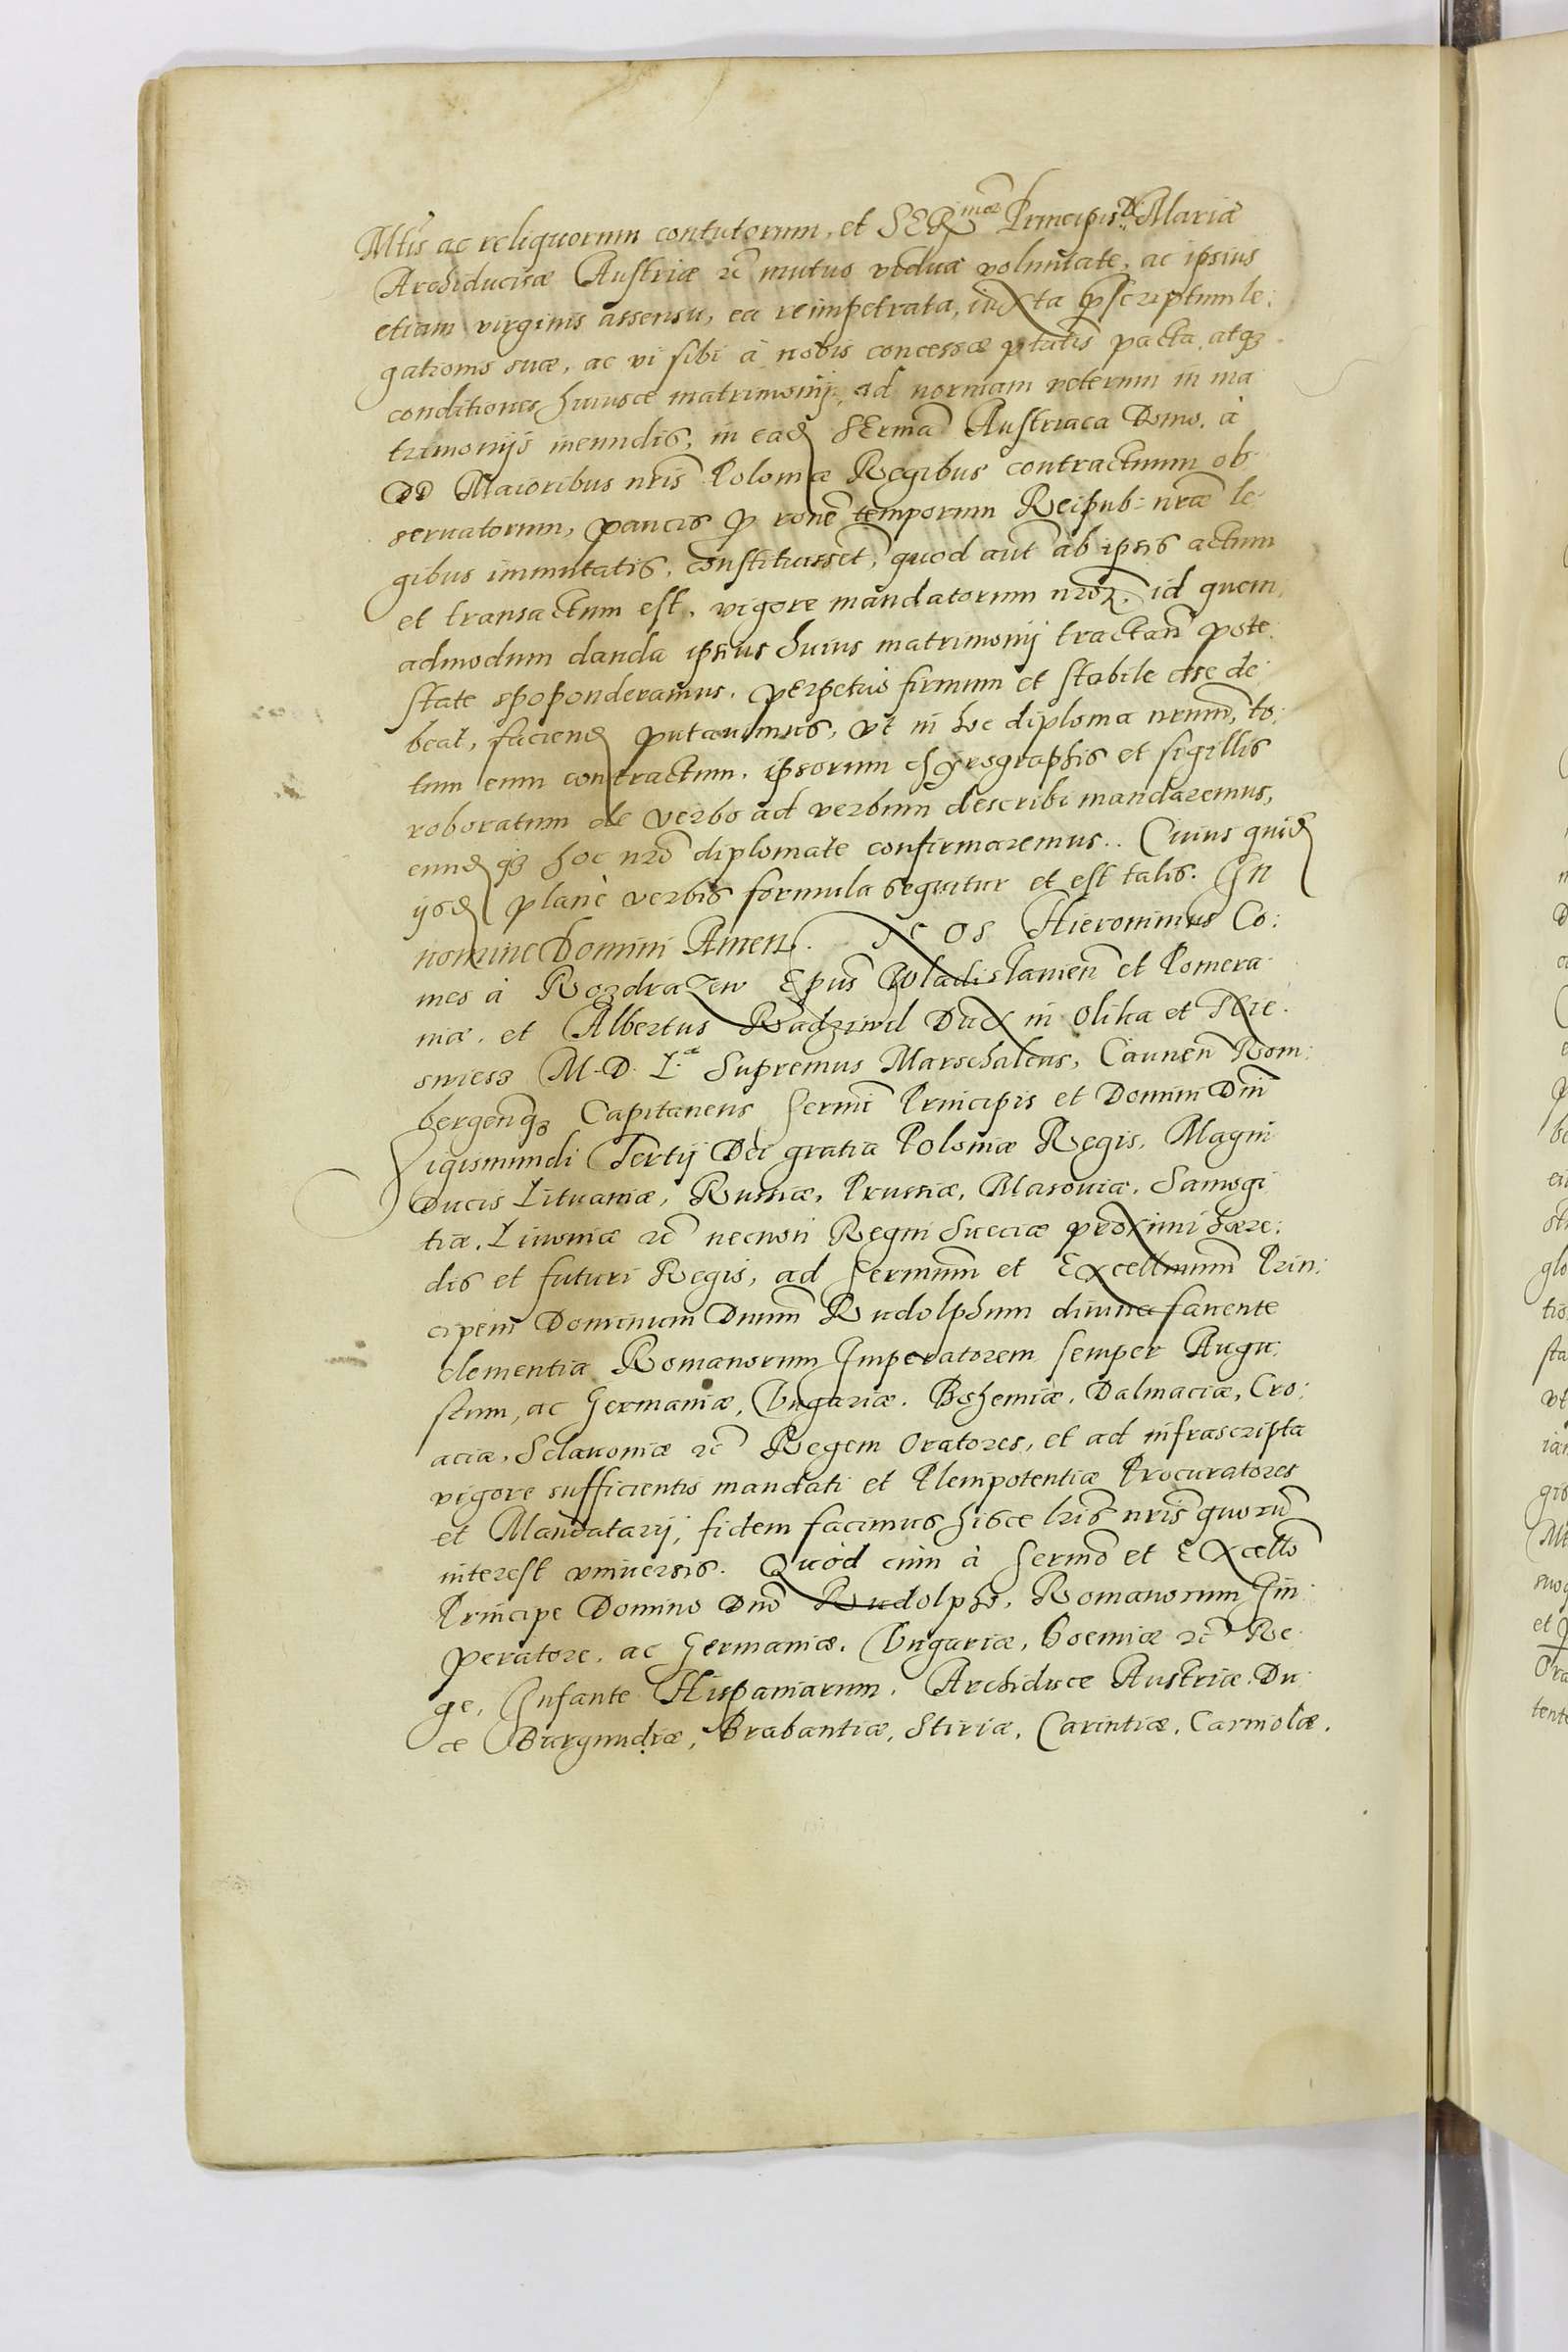 Mtis ac reliquorum contutorum, et SERmae Principis D: Mariæ
Archiducissæ Austriæ rc mutuo viduæ voluntate, ac ipsius
etiam virginis assensu, ea re impetrata, iuxta pscriptum le:
gationis suæ, ac vi sibi à nobis concessæ ptatis pacta atq3
conditiones huiusce matrimonij, ad normam veterum in ma
trimonijs ineundis, in ead SErma Austriaca Domo, à
DD Maioribus nris Poloniæ Regibus contractuum ob
seruatorum, paucis p rone temporum Reipub: nræ le
gibus immutatis, constituisset, quod aut ab ipsis actum
et transactum est, vigore mandatorum nror, id quem
admodum danda ipsius huius matrimonij tractan pote
state spoponderamus, perpetuò firmum et stabile esse de
beat, faciend putauimus, vt in hoc diploma nrum, to:
tum eum contractum, ipsorum chyrographis et sigillis
roboratum de verbo ad verbum describi mandaremus,
eund q3 hoc nro diplomate confirmaremus.. Cuius quid
ijsd planè verbis formula sequitur et est talis. In
nomine Domini Amen. Nos Hieronimus Co:
mes à Rozdrazew Epus Wladislauien et Pomera
niæ, et Albertus Radziwil Dux in Olika et Nie
swiesz M. D. L. Supremus Marschalcus, Caunen Rom
bergenq3 Capitaneus Sermi Principis et Domini Dni
Sigismundi Tertij Dei gratia Poloniæ Regis, Magni
Ducis Lituaniæ, Russiæ, Prussiæ, Masouiæ, Samogi
tiæ, Liuoniæ rc necnon Regni Sueciæ proximi hære:
dis et futuri Regis, ad Sermum et Excellmum Prin:
cipem Dominum Dnum Rudolphum diuina fauente
clementia Romanorum Imperatorem semper Augu:
stum, ac Germaniæ, Vngariæ, Bohemiæ, Dalmaciæ, Cro:
aciæ, Sclauoniæ rc Regem Oratores, et ad infrascripta
vigore sufficientis mandati et Plenipotentiæ Procuratores
et Mandatarij, fidem facimus hisce lris nris quoru
interest vniuersis. Quòd cum à Sermo et Excello
Principe Domino Dno Rudolpho, Romanorum Im
peratore, ac Germaniæ, Vngariæ, Boemiæ rc Re
ge, Infante Hispaniarum, Archiduce Austriæ, Du
ce Burgundiæ, Brabantiæ, Stiriæ, Carintiæ, Carniolæ,